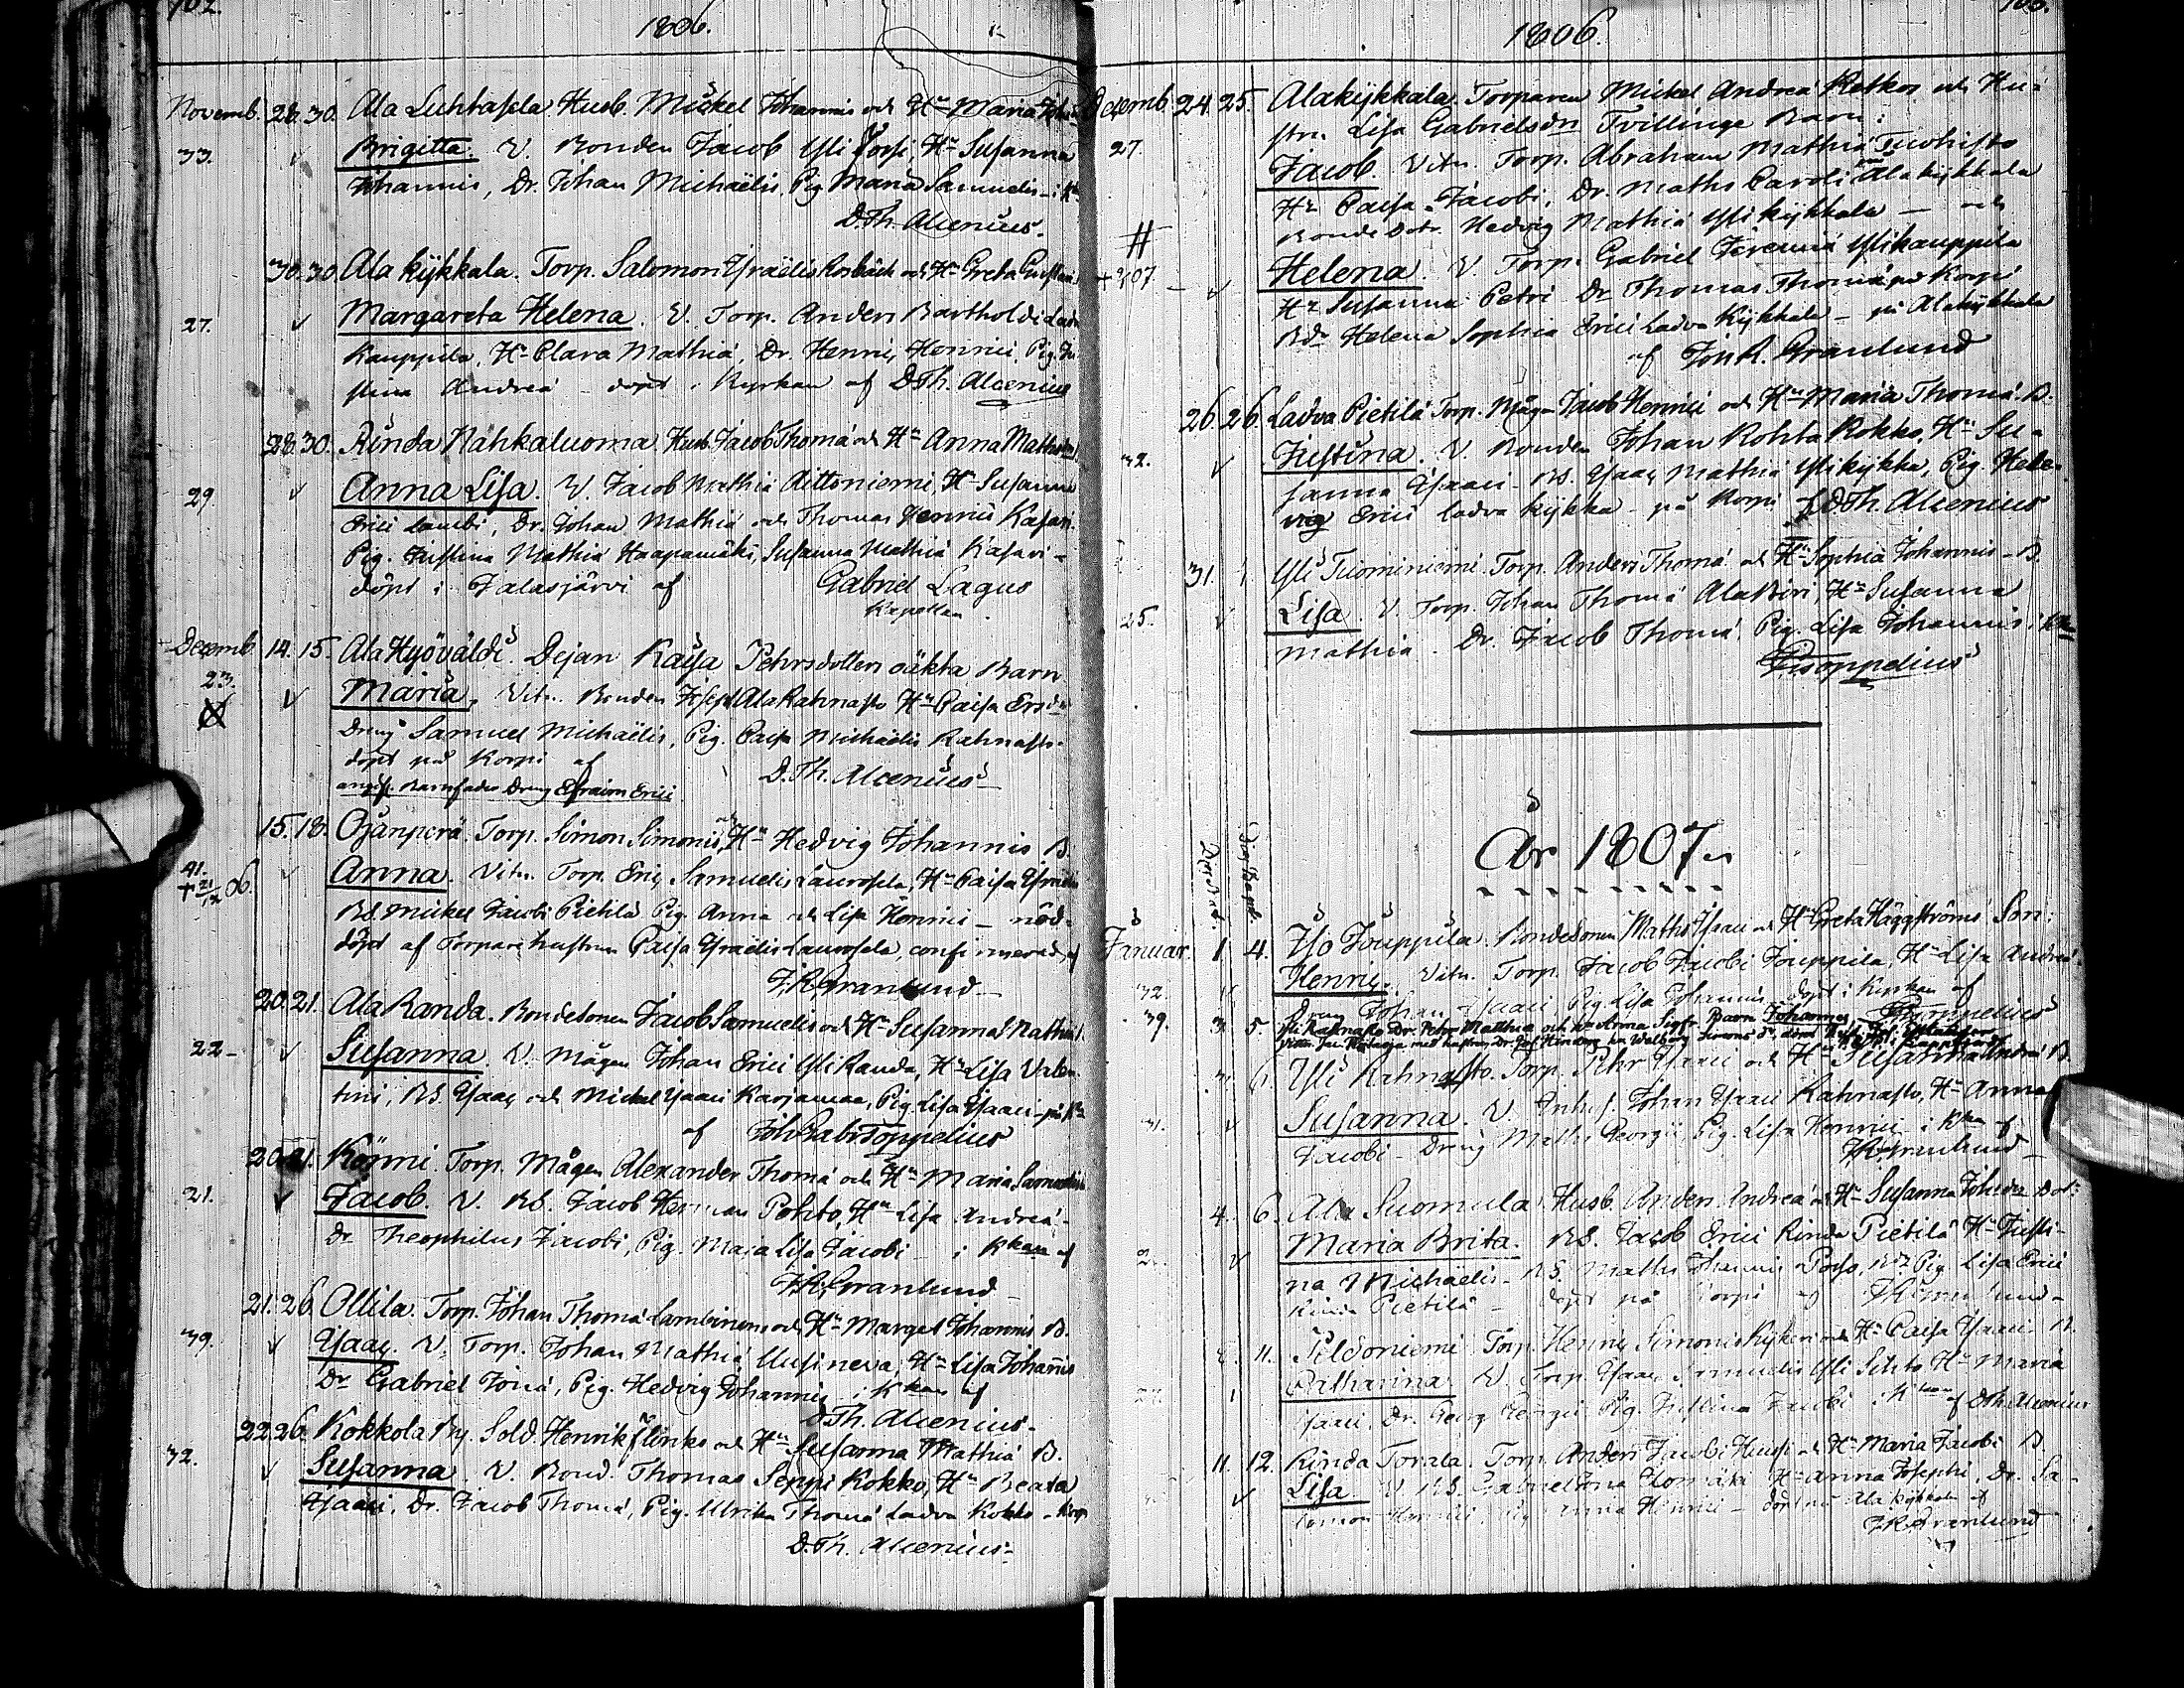 102.
1806.
Novemb. 28. 30. Ala Luhtasela Husb. Mickel Johannis och Hu Maria
33. Brigitta. V. Bonden Jacob Yli Hu Susanna
Johannis, Dr. Johan Michaëlis, Pig Maria Samuelis - i
D. Th. Alcenius.
30. 30. Ala kykkala. Torp. Salomon Israëlis Rosbäck och Hu Greta
27. Margareta Helena. V. Torp. Anders Bartholdi Ladva
Kauppila, Hu Clara Mathiá, Dr. Henric Henrici, Pig. Ju
stina Andreá - döpt i Kyrkan af D. Th. Alcenius
28. 30. Rinda Nahkaluoma Husb. Jacob Thomá och Hu Anna
29. Anna Lisa. V. Jacob Mathiá Aittoniemi, Hu Susanna
Erici Dr. Johan Mathiá och Thomas Henrici Kasari.
Pig. Justina Mathiá Haapamäki, Susanna Mathiá Kasari -
döpt i Jalasjärvi af Gabriel Lagus
Kapellan
Decemb 14. 15. Ala Hyövälde. Dejan Kaisa Pehrsdotters oäkta Barn
23. Maria. Vitn. Bonden Joseph Ala Rahnasto Hu Caisa
Dreng Samuel Michaëlis, Pig. Caisa Michaëlis Rahnasto.
döpt på Korpi af D. Th. Alcenius
angifv. Barnfader Dreng Efraim Erici
15. 18. Ojanperä. Torp. Simon Simonis, och Hu Hedvig Johannis B.
41. Anna. Vitn. Torp. Eric Samuelis Laurosela, Hu Caisa
+ 21/12 06.
BS. Mickel Jacobi Pietilä Pig. Anna och Lisa Henrici - nöd-
döpt af Torpare hustrun Caisa Israëlis Laurosela, confirmerad af
J. R. Granlund
20. 21. Ala Randa. Bondesonen Jacob Samuelis och Hu Susanna
22 - Susanna. V. Mågen Johan Erici Yli Randa, Hu Lisa Valen
tini, BS. Isaac och Mickel Isaaci Karjanmaa, Pig. Lisa Isaaci - på
af Joh Gabr Toppelius
20. 21. Könni. Torp. Mågen Alexander Thomá och Hu Maria
21. Jacob. V. BS. Jacob Herman Pohto, Hu Lisa Andreá -
Dr Theophilus Jacobi, Pig. Maja Lisa Jacobi - i Kkan af
J. R. Granlund
21. 26. Ollila. Torp. Johan Thomá Lambinen och Hu Marget Johannis B.
39. Isaac. V. Torp. Johan Mathiá Uusineva, Hu Lisa Johannis
Dr Gabriel Joná, Pig. Hedvig Johannis - i Kkan af
D. Th. Alcenius.
22. 26. Kokkola By. Sold. Henrik Flinko och Hu Susanna Mathiá B.
32. Susanna. V. Bond. Thomas Seppi Kokko, Hu Beata
Isaaci, Dr. Jacob Thomá, Pig. Ulrika Thomá Ladva Kokko -
D. Th. Alcenius -
103.
1806.
Decemb 24. 25. Alakykkala. Torparen Mickel Andreá Retkos och Hu-
27. strn. Lisa Gabrielsdr Tvillinge Barn:
Jacob. Vitn. Torp. Abraham Mathiá
Hu Caisa Jacobi, Dr. Maths Caroli Alakykkala
Bonde Dotr. Hedvig Mathiá Yli kykkala - och
Helena. V. Torp. Gabriel Jeremiá Ylikauppila
Hu Susanna Petri Dr Thomas Thomá på Korpi
Bdr Helena Sophia Erici Ladva Kykkala - på Alakykkala
af J. R. Granlund
26. 26. Ladva Pietilä Torp. Måg Jacob Henrici och Hu Maria Thomá. B.
32. Justina. V. Bonden Johan Rohta Kokko, Hu Su-
sanna Isaaci - BS. Isaac Mathiá Ylikykka, Pig. Hede-
vig Erici Ladva kykka - på Korpi af D. Th. Alcenius
31. Yli Tuominiemi Torp. Anders Thomá och Hu Sophia Johannis - B.
25. Lisa. V. Torp. Johan Thomá Ala Hu Susanna
Mathiá. Dr. Jacob Thomá, Pig. Lisa Johannis i
Toppelius
År 1807.
Januar. 1 4. Iso Jouppila. Bondesonen Maths Isaaci och Hu Greta Häggströms Son:
32. Henric. Vitn. Torp. Jacob Jacobi Jouppila, Hu Lisa Andreá
Dreng Johan Isaaci, Pig. Lisa Johannis döpt i Kyrkan af Toppelius
39. 3. 5. Yli Rahnasto Dr. Petr Matthiæ och hu Anna Barn Johannes
3. 6. Yli Rahnasto. Torp. Pehr Isaaci och Hu Susanna Andreá B.
31. Susanna. V. Inhys. Johan Isaaci Rahnasto, Hu Anna
Jacobi - Dreng Maths Georgii, Pig. Lisa Henrici - i Kkan af
J. R. Granlund
4. 6. Ala Suomula Husb. Anders Andreá och Hu Susanna Dot:
Maria Brita. BS. Jacob Erici Rinda Pietilä Hu Justi-
na Michaëlis - BS. Maths Johannis Pig. Lisa Erici
Rinda Pietilä - döpt på Korpi af J. R. Granlund -
11. Torp. Henric Simonis och Hu Caisa Isaaci B.
Catharina V. Torp. Isaac Samuelis Yli Hu Maria
Isaaci, Dr. Georg Georgii, Pig. Justina Jacobi i Kkan af D Th Alcenius
11. 12. Rinda Torp. Anders Jacobi och Hu Maria Jacobi B.
Lisa. V. BS. Gabriel Joná Hu Anna Josephi, Dr. Sa-
lomon Henrici, Pig. Anna Henrici - döpt på Ala kykkala af
J. R. Granlund